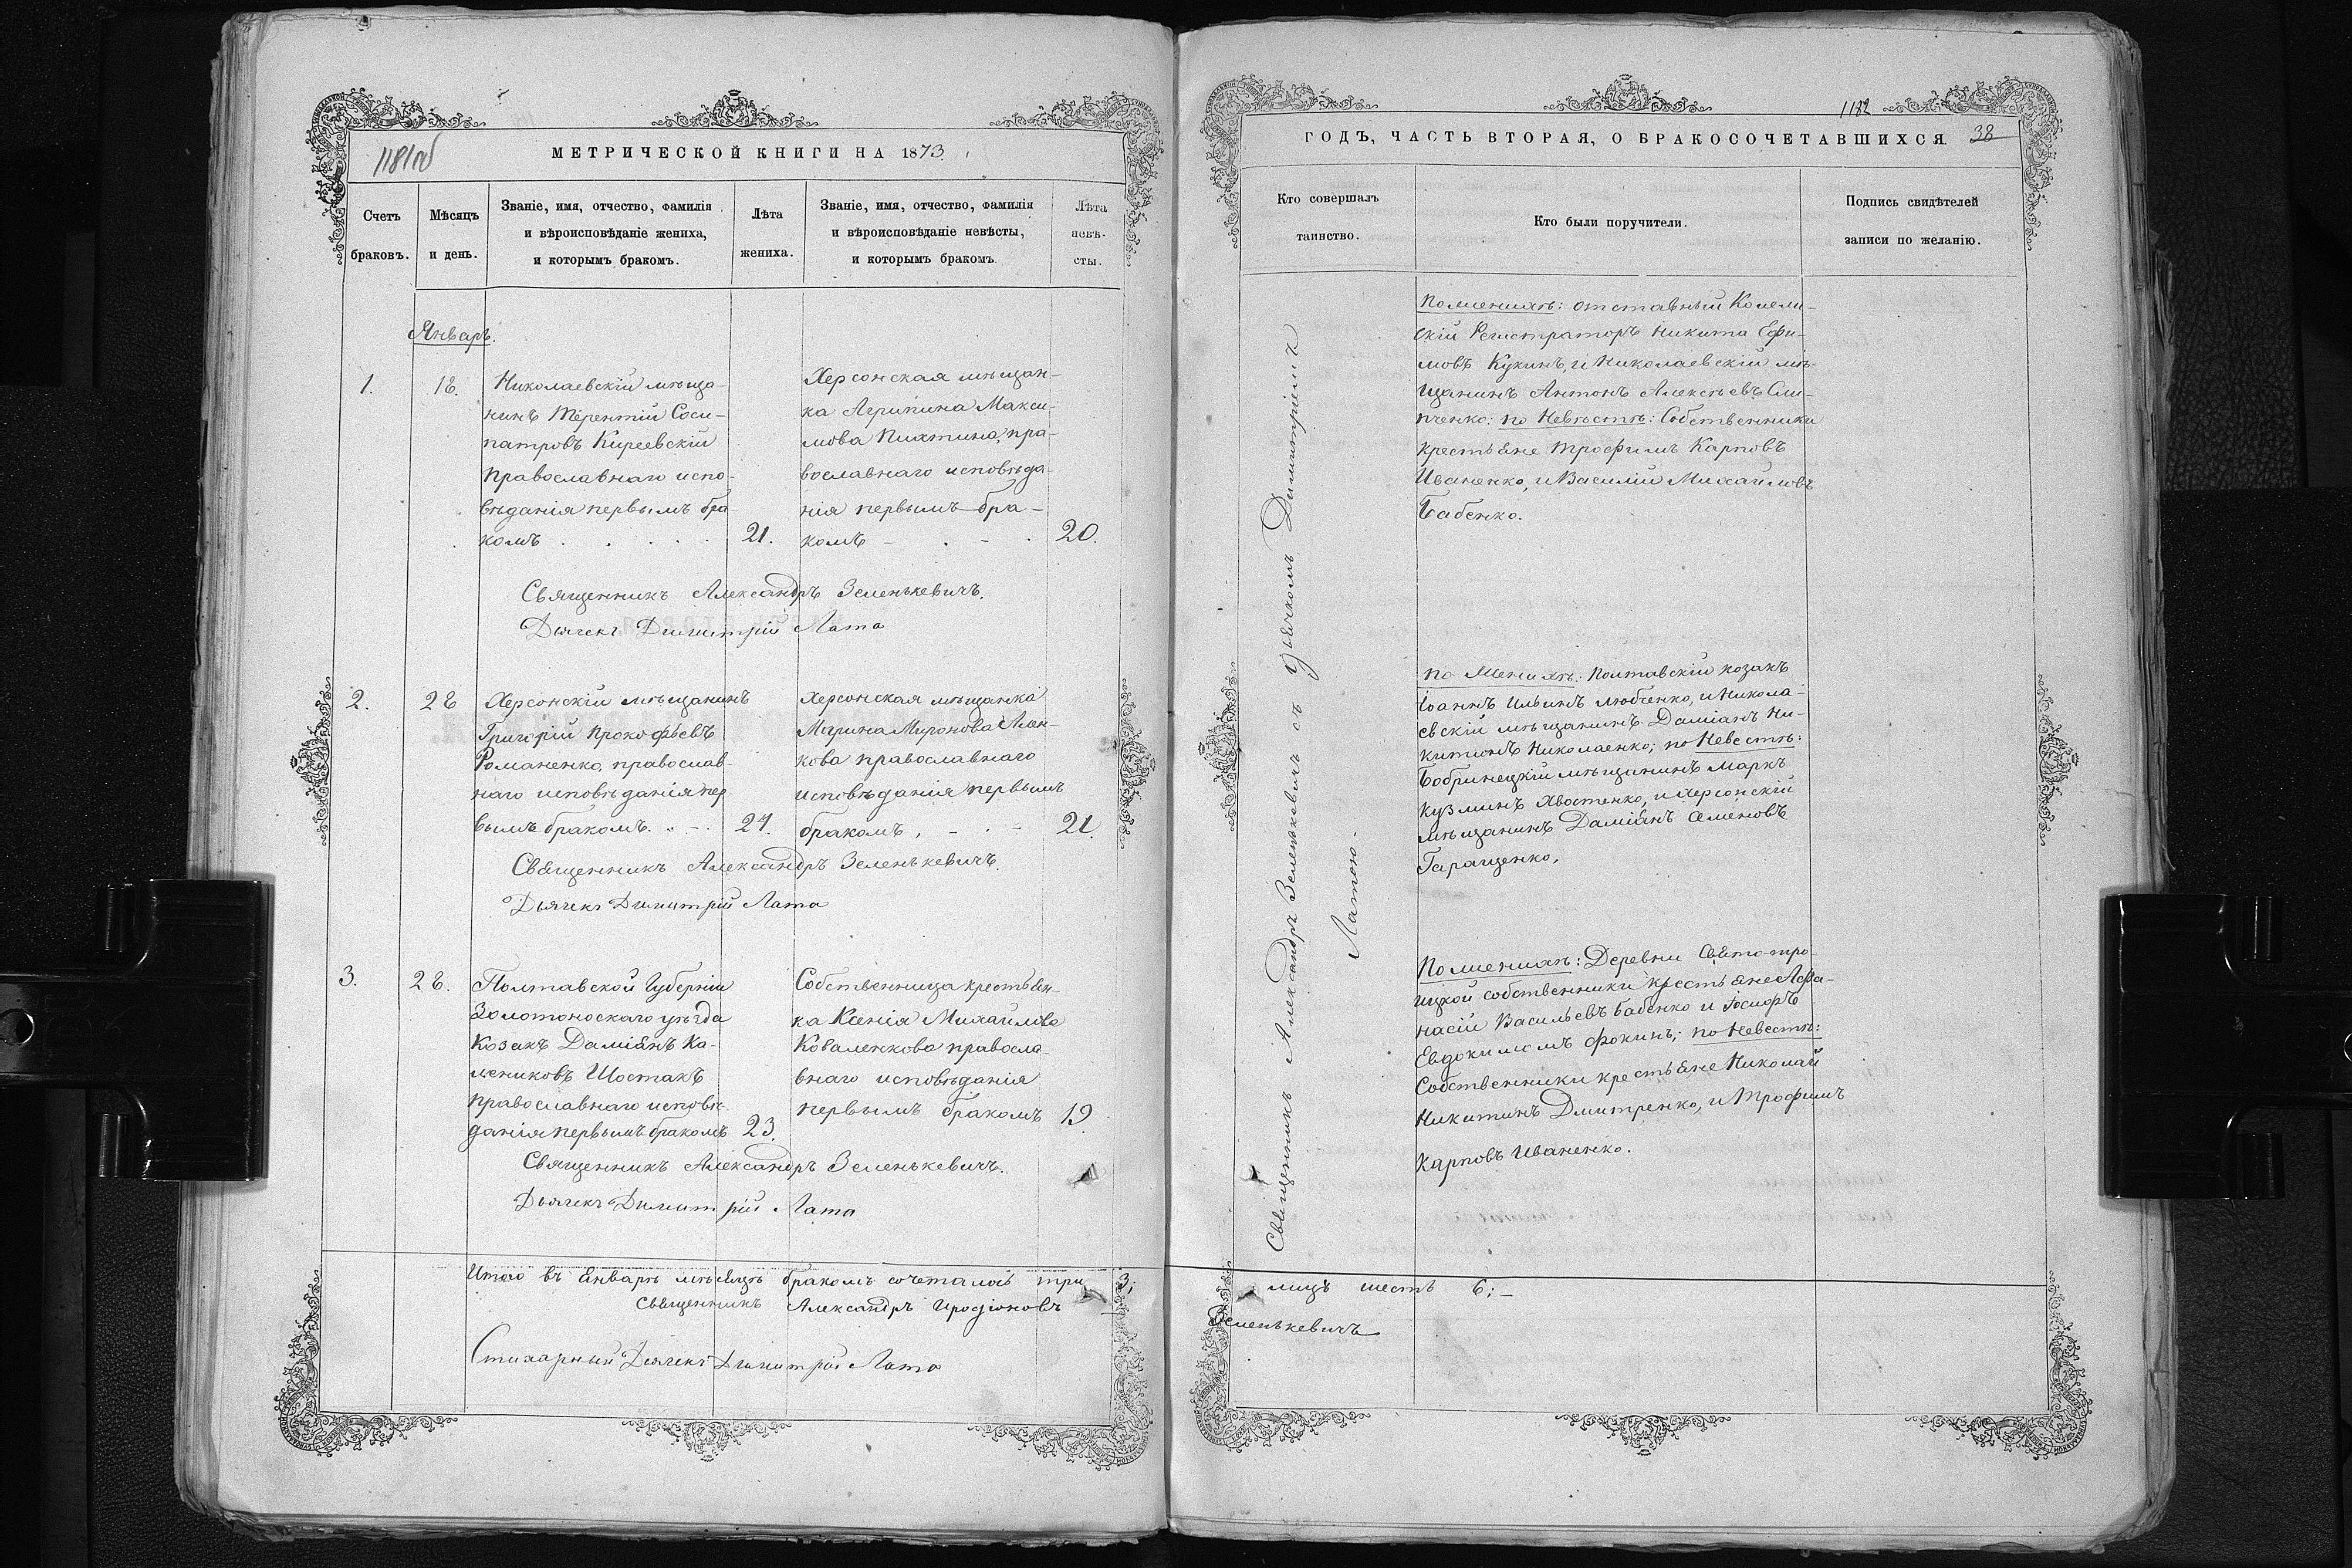 1181об
МЕТРИЧЕСКОЙ КНИГИ НА 1873.
Счетъ браковъ.
Мѣсяцъ и день.
Званіе, имя, отчество, фамилія
и вѣроисповѣданіе жениха,
и которымъ бракомъ.
Лѣта
жениха.
Званіе, имя, отчество, фамилія
и вѣроисповѣданіе невѣсты,
и которымъ бракомъ.
Лѣта
невѣ-
сты.
Январь.
1.
18.
Николаевскій мѣща-
нинъ Терентій Соси-
патровъ Киреевскій
православнаго испо-
вѣданія первымъ бра-
комъ
21.
Херсонская мѣщан-
ка Агрипина Макси-
мова Пихтина, пра-
вославнаго исповѣда-
нія первымъ бра-
комъ
20.
Священникъ Александръ Зеленькевичъ.
Дьячекъ Димитрій Лата
2.
28
Херсонскій мѣщанинъ
Григорій Прокофьевъ
Романенко, православ-
наго исповѣданія пер-
вымъ бракомъ.
24.
Херсонская мѣщанка
Марина Миронова
кова православнаго
исповѣданія первымъ
бракомъ,
21.
Священникъ Александръ Зеленькевичъ.
Дьячекъ Димитрій Лата
3.
28.
Полтавской Губерніи
Золотоноскаго уѣзда
Козакъ Даміанъ Ка-
лениковъ Шостакъ
православнаго исповѣ-
данія первымъ бракомъ
23.
Собственница крестьян-
ка Ксенія Михайлова
Коваленкова правосла-
внаго исповѣданія
первымъ бракомъ
19.
Священникъ Александръ Зеленькевичъ.
Дьячекъ Димитрій Лата
Итого въ Январѣ мѣсяцѣ бракомъ сочеталось три 3;
Священникъ Александръ Иродіоновъ
Стихарный Дьячекъ Димитрій Лата
1182
ГОДЪ, ЧАСТЬ ВТОРАЯ, О БРАКОСОЧЕТАВШИХСЯ.
38
Кто совершалъ
таинство.
Кто были поручители.
Подпись свидѣтелей
записи по желанію.
Священникъ Александръ Зеленькевичъ съ дьячкомъ Димитріемъ
Латою.
По женихѣ: отставный Колеж-
скій Регистраторъ Никита Ефи-
мовъ Кукинъ, и Николаевскій мѣ-
щанинъ Антонъ Алексѣевъ Сли-
пченко; по Невѣстѣ: Собственники
крестьяне Трофимъ Карповъ
Иваненко, и Василій Михайловъ
Бабенко.
по Женихѣ: Полтавскій козакъ
Іоаннъ Ильинъ Любченко, и Никола-
евскій мѣщанинъ Даміанъ Ни-
китинъ Николаенко; по Невестѣ:
Бобринецкій мѣщанинъ Маркъ
Кузминъ Хвостенко, и Херсонскій
мѣщанинъ Даміанъ Семеновъ
Гаращенко,
По женихѣ: Деревни Свято-тро-
ицкой собственники крестьяне Афа-
насій Васильевъ Бабенко и Іосифъ
Евдокимомъ Фокинъ; по Невестѣ:
Собственники крестьяне Николай
Никитинъ Дмитренко, и Трофимъ
Карповъ Иваненко.
лицъ шесть 6;
Зеленькевичъ